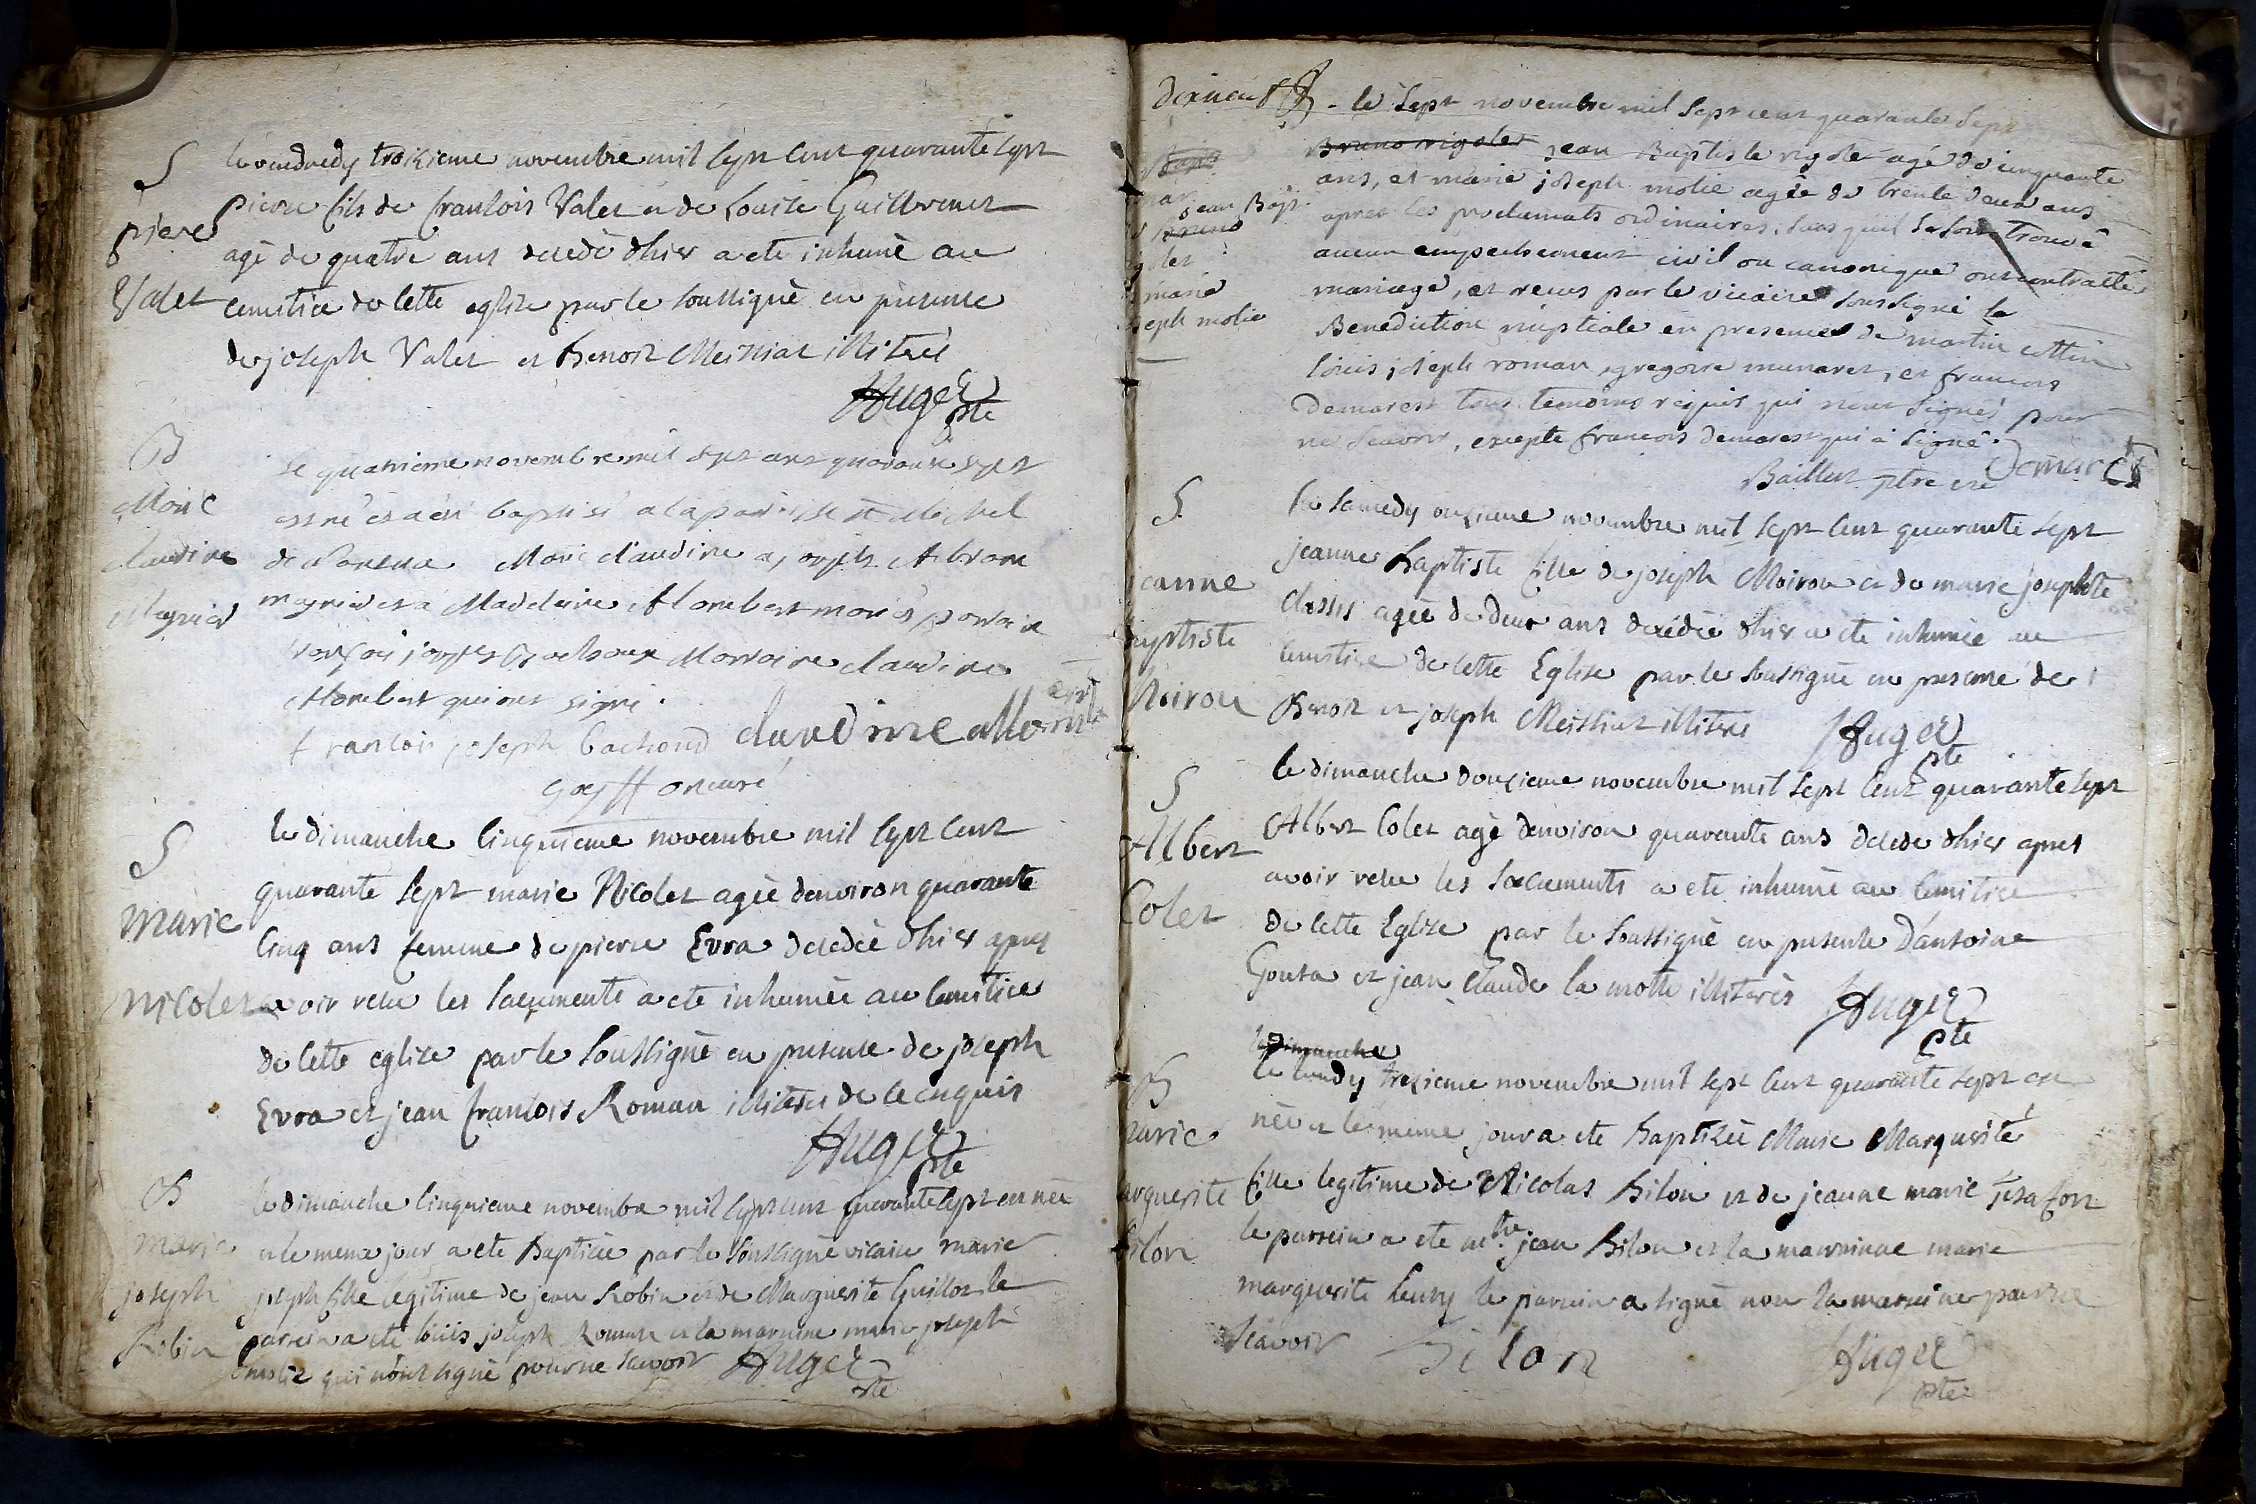 S
pierre
Valet
le vendredy troizieme novembre mil sept cent quarante sept
pierre fils de francois Valet et de Louise Guillermet
agé de quatre ans decedé dhier a ete inhumé au
cemitice de cette eglize par le soussigné en presence
de joseph Valet et Benoit Meissiat illitrés
Huger
ptre
B
Marie
claudine
Meynier
Le quatrieme novembre mil sept cent quarante sept
est né et a été baptisé a la paroisse st Michel
de Marie claudine a joseph Abram
meynier et a Madelaine Alombert mariés parrain
francois joseph Bachoud Marraine claudine
Alombert qui ont signé.
francois joseph bachoud claudine allombert
goyffon curé
S
marie
nicolet
le dimanche cinquieme novembre mil sept cent
quarante sept marie Nicolet agée denviron quarante
cinq ans femme de pierre Evra decedée dhier apres
avoir recu les sacrements a ete inhumée au cemitice
de cette eglize par le soussigné en presence de joseph
Evra et jean francois Roman illitrés de ce enquis
Huger
ptre
B
marie
joseph
Robin
le dimanche cinquieme novembre mil sept cent quarante sept est née
et le meme jour a ete baptizée par le soussigné vicaire marie
joseph fille legitime de jean Robin et de Marguerite Guillot le
parrein a ete louis joseph Roman et la marraine marie joseph
molie qui n'ont signé pour ne scavoir Huger
ptre
dixneuf - le sept novembre mil sept cent quarante sept
Bruno rigolet jean Baptiste rigolet agé de cinquante
ans, et marie joseph molie agée de trente deux ans
apres les proclamats ordinaires, sans quil se soit trouvé
aucun empechement civil ou canonique ont contracté
mariage, et recus par le vicaire soussigné la
Benediction nuptiale en presence de martin cottin
louis joseph roman, gregoire munaret, et francois
demarest tous temoins requis qui n'ont signés pour
ne scavoir, excepte francois demarest qui a signé.
Baillet ptre vic Demarest
jean Bapt.
Bruno
golet
marie
seph molie
S
jeanne
baptiste
Moirou
le samedy onzieme novembre mil sept cent quarante sept
jeanne Baptiste fille de joseph Moirou et de marie josephte
classis agée de deux ans decedée dhier a ete inhumée au
cemitice de cette Eglise par le soussigné en presence de
Benoit et joseph Meissiat illitrés Huger
ptre
S
Albert
Colet
le dimanche douzieme novembre mil sept cent quarante sept
Albert Colet agé denviron quarante ans decede dhier apres
avoir recu les sacrements a ete inhumé au cemitice
de cette Eglize par le soussigné en presence d'antoine
Gousa et jean claude la motte illitérés Huger
ptre
B
marie
arguerite
bilon
le Dimanche
le lundy trezieme novembre mil sept cent quarante sept est
née et le meme jour a ete baptizée Marie Marguerité
fille legitime de Nicolas Bilon et de jeanne marie
le parrein a ete mtre jean Bilon et la marrainne marie
marguerite le parrein a signé non la marraine pour ne
scavoir Bilon Huger
ptre